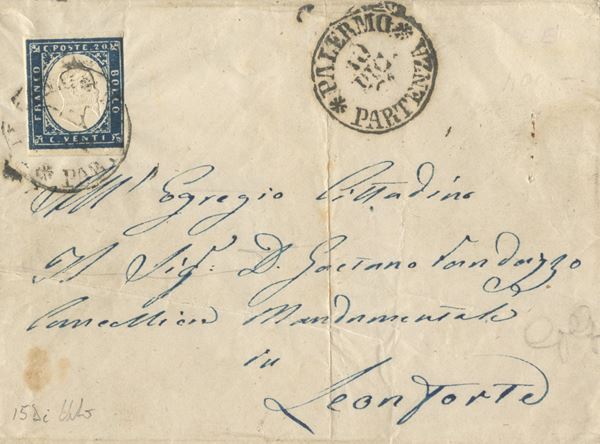 C. POSTE. 20
FRANCO
BOLLO
C. VENTI
PALERMO
10
DIC
PARTENZA
PAR
All' Egregio Cittadino
Il Sig: D. Gaetano Vandazzo
Cancelliere Mandamentale
in
Leonforte
15 Di